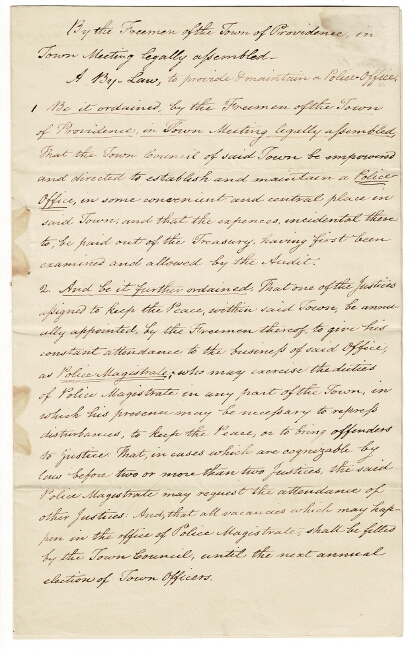 By the Freemen of the Town of Providence, in
Town Meeting legally assembled—
A By-Law, to provide & maintain a Police-Office,
1 Be it ordained, by the Freemen of the Town
of Providence, in Town Meeting legally assembled,
That the Town Council of said Town be empowered
and directed to establish and maintain a Police
Office, in some convenient and central place in
said Town; and that the expences, incidental there
to, be paid out of the Treasury, having first been
examined and allowed by the Audit.
2. And be it further ordained, That one of the Justices
assigned to keep the Peace, within said Town, be annu-
ally appointed, by the Freemen thereof, to give his
constant attendance to the business of said Office,
as Police Magistrate; who may exercise the duties
of Police Magistrate in any part of the Town, in
which his presence may be necessary to repress
disturbances, to keep the Peace, or to bring offenders
to justice. That, in cases which are cognizable by
law before two or more than two Justices, the said
Police Magistrate may request the attendance of
other Justices. And, that all vacancies which may hap-
pen in the office of Police Magistrate, shall be filled
by the Town Council, until the next annual
election of Town Officers.